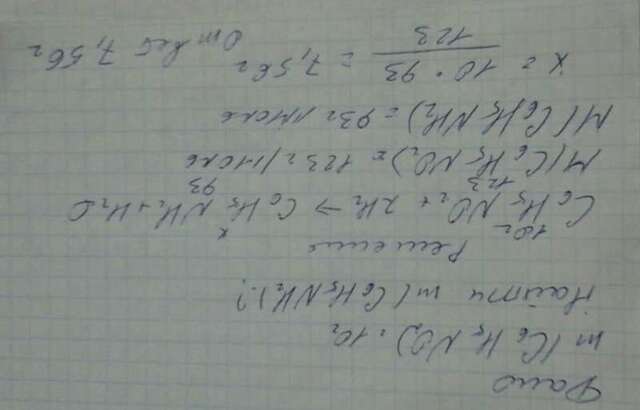 Дано
m(C6H5NO2) = 10г
Найти m(C6H5NH2)-?
Решение
10г x
C6H5NO2 + 2H2 → C6H5NH2 + H2O
123 93
M(C6H5NO2) = 123г/моль
M(C6H5NH2) = 93г/моль
x = 10 · 93 / 123 = 7,56г Ответ 7,56г